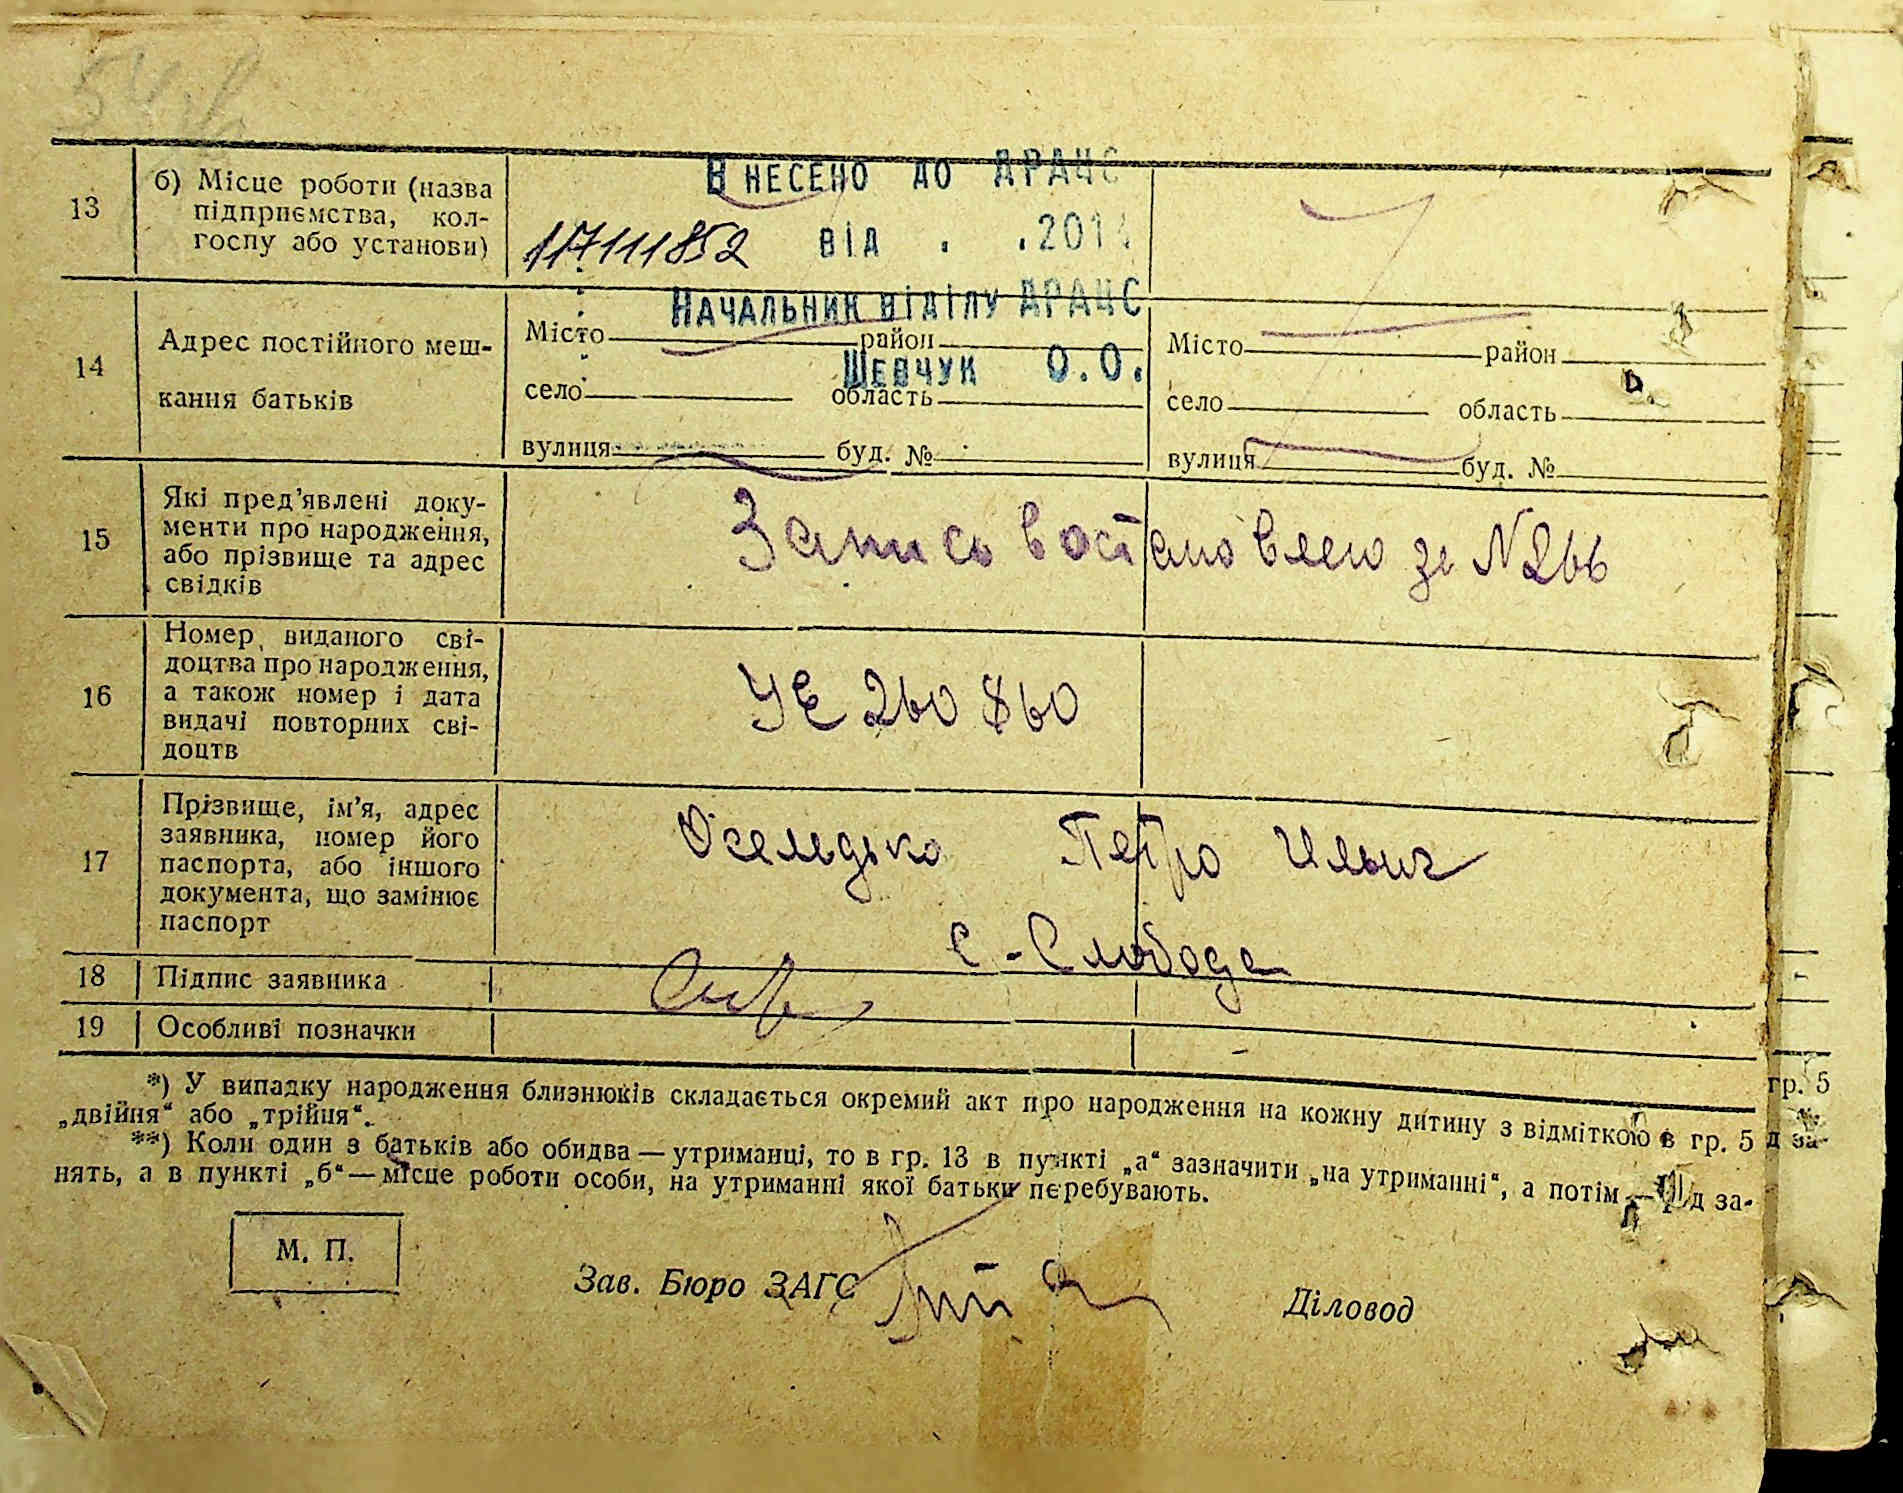 13
б) Місце роботи (назва
підприємства, кол-
госпу або установи)
Внесено до ДРАЦС
11711852 від . .2014
Начальник відділу ДРАЦС
Шевчук О.О.
14
Адрес постійного меш-
кання батьків
Місто район
село область
вулиця буд. №
Місто район
село область
вулиця буд. №
15
Які пред’явлені доку-
менти про народження,
або прізвище та адрес
свідків
Запись востановлено за N 266
16
Номер виданого сві-
доцтва про народження,
а також номер і дата
видачі повторних сві-
доцтв
УЕ 260860
17
Прізвище, ім’я, адрес
заявника, номер його
паспорта, або іншого
документа, що замінює
паспорт
Оселедько Петро Ильич
с-Слобода
18 Підпис заявника
19 Особливі позначки
*) У випадку народження близнюків складається окремий акт про народження на кожну дитину з відміткою в гр. 5
„двійня“ або „трійня“.
**) Коли один з батьків або обидва — утриманці, то в гр. 13 в пункті „а“ зазначити „на утриманні“, а потім —
нять, а в пункті „б“ — місце роботи особи, на утриманні якої батьки перебувають.
гр. 5
д за-
М. П.
Зав. Бюро ЗАГС
Діловод